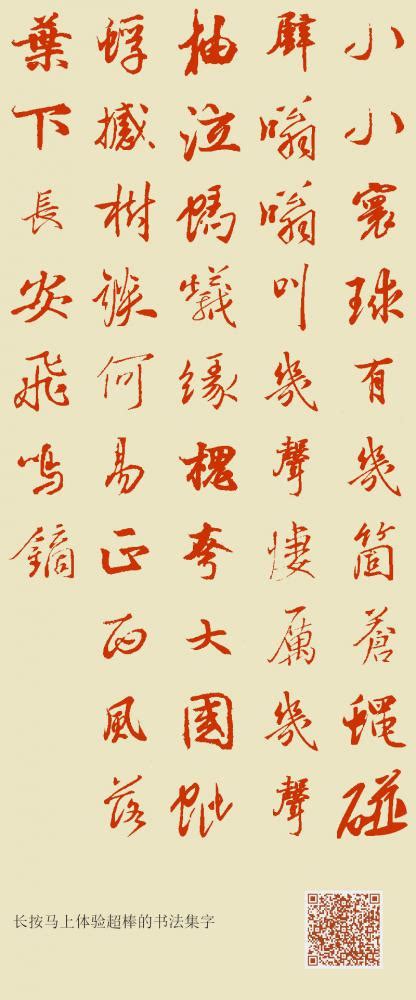 小小寰球有幾箇蒼蠅碰
壁嗡嗡叫幾聲悽厲幾聲
抽泣螞蟻緣槐夸大國蚍
蜉撼樹談何易正西風落
葉下長安飛鳴鏑
长按马上体验超棒的书法集字